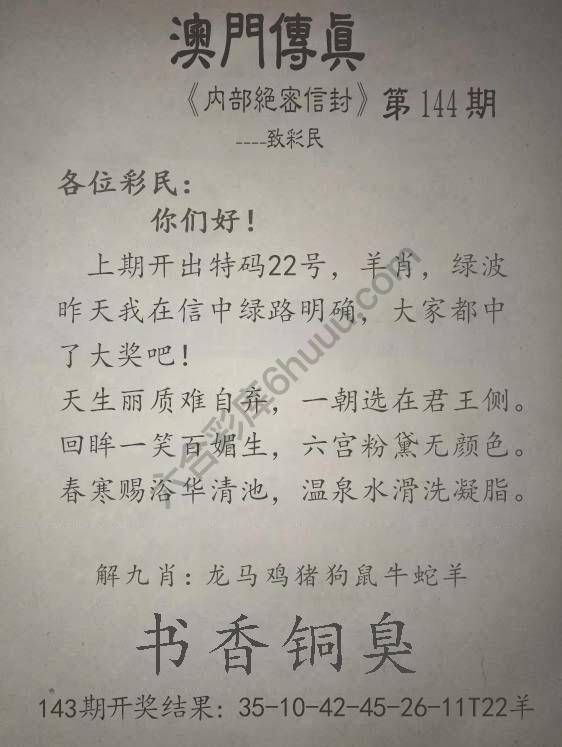 澳門傳真
《内部絕密信封》第144期
----致彩民
各位彩民：
你们好！
上期开出特码22号，羊肖，绿波
昨天我在信中绿路明确，大家都中
了大奖吧！
天生丽质难自弃，一朝选在君王侧。
回眸一笑百媚生，六宫粉黛无颜色。
春寒赐浴华清池，温泉水滑洗凝脂。
解九肖：龙马鸡猪狗鼠牛蛇羊
书香铜臭
143期开奖结果：35-10-42-45-26-11T22羊
六合彩库6huuu.com